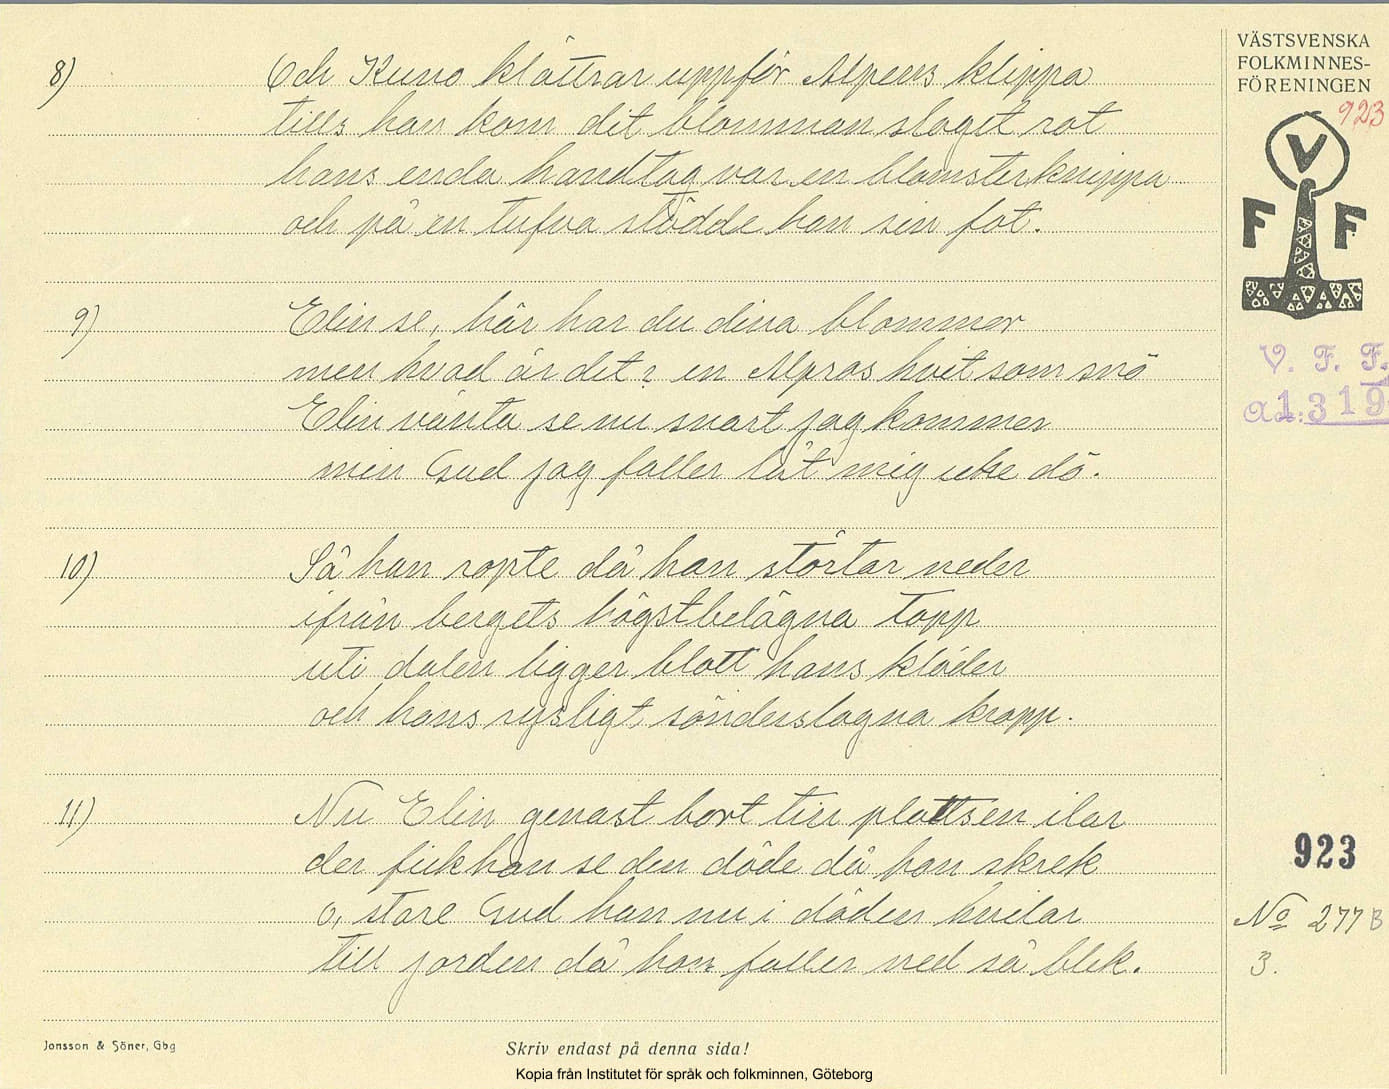 VÄSTSVENSKA
FOLKMINNES-
FÖRENINGEN
923
V
F F
V. F. F.
1319
8) Och Kuno klättrar uppför Alpens klippa
tills han kom dit blomman slaget rot
hans enda handtag var en blomsterknippa
och på en tufva stödde han sin fot.
9) Elin se, här har du dina blommor
men hvad är det? en Alpros hvit som snö
Elin vänta se nu snart jag kommer
min Gud jag faller låt mig icke dö.
10) Så han ropte då han störtar neder
ifrån bergets högstbelägna topp
uti dalen ligger blott hans kläder
och hans rysligt sönderslagna kropp.
11) Nu Elin genast bort till plattsen ilar
der fick hon se den döde då hon skrek
o, store Gud han nu i döden hvilar
till jorden då hon faller ned så blek.
923
No 277 B
3.
Jonsson & Söner, Gbg
Skriv endast på denna sida!
Kopia från Institutet för språk och folkminnen, Göteborg